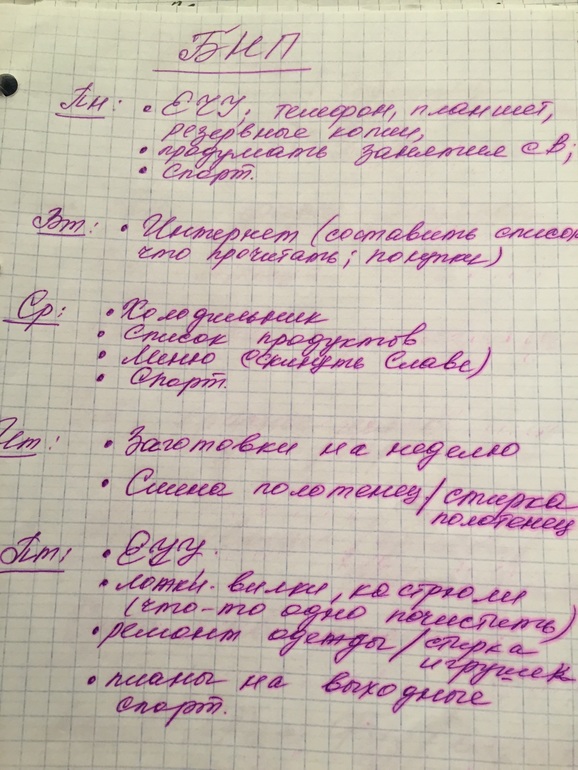 БНП
Пн: • ЕЧУ, телефон, планшет,
резервные копии,
• продумать занятия с В;
• Спорт.
Вт: • Интернет (составить список
что прочитать; покупки)
Ср: • Холодильник
• Список продуктов
• Меню (скинуть Славе)
• Спорт.
Чт: • Заготовки на неделю
• Смена полотенец/стирка
полотенец
Пт: • ЕЧУ.
• ложки-вилки, кастрюли
(что-то одно почистить)
• ремонт одежды/стирка
игрушек
• планы на выходные
спорт.